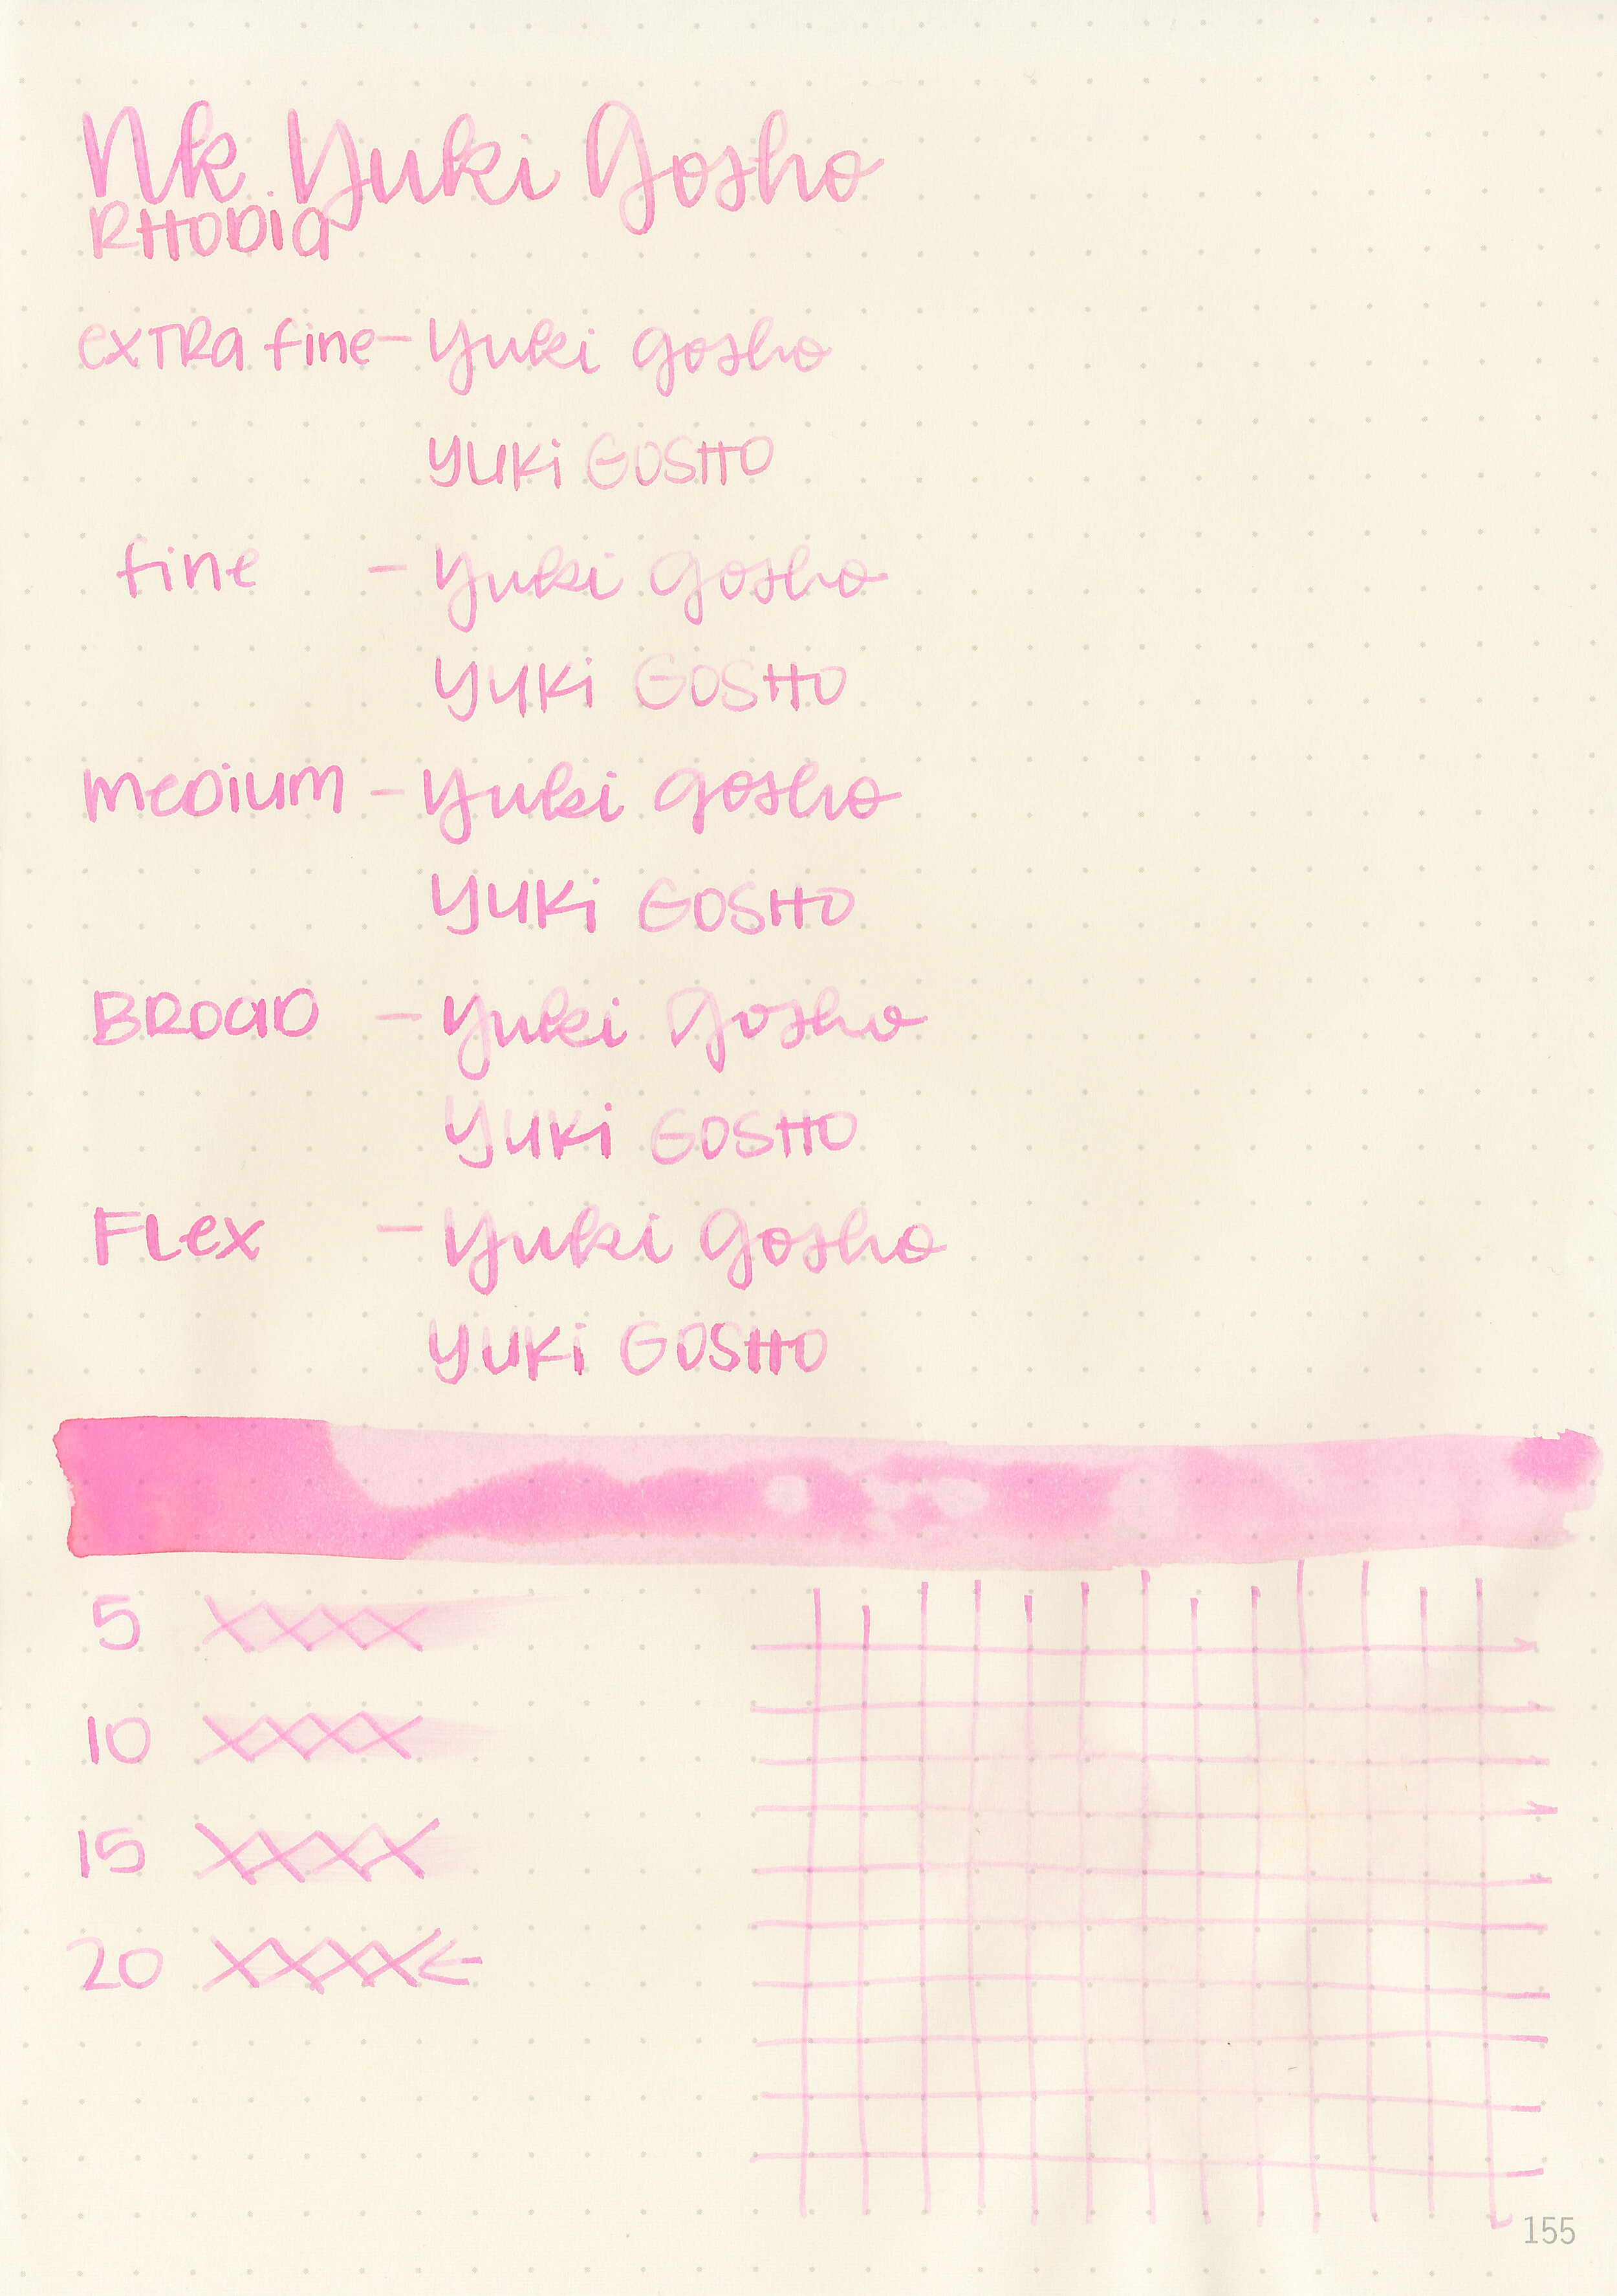 Nk Yuki Gosho
RHODIA
extra fine - Yuki gosho
YUKi GOSHO
fine - Yuki gosho
YUKi GOSHO
medium - Yuki gosho
YUKi GOSHO
BROAD - Yuki Gosho
YUKi GOSHO
Flex - Yuki gosho
YUKi GOSHO
5 XXXX
10 XXXX
15 XXXX
20 XXXX
155